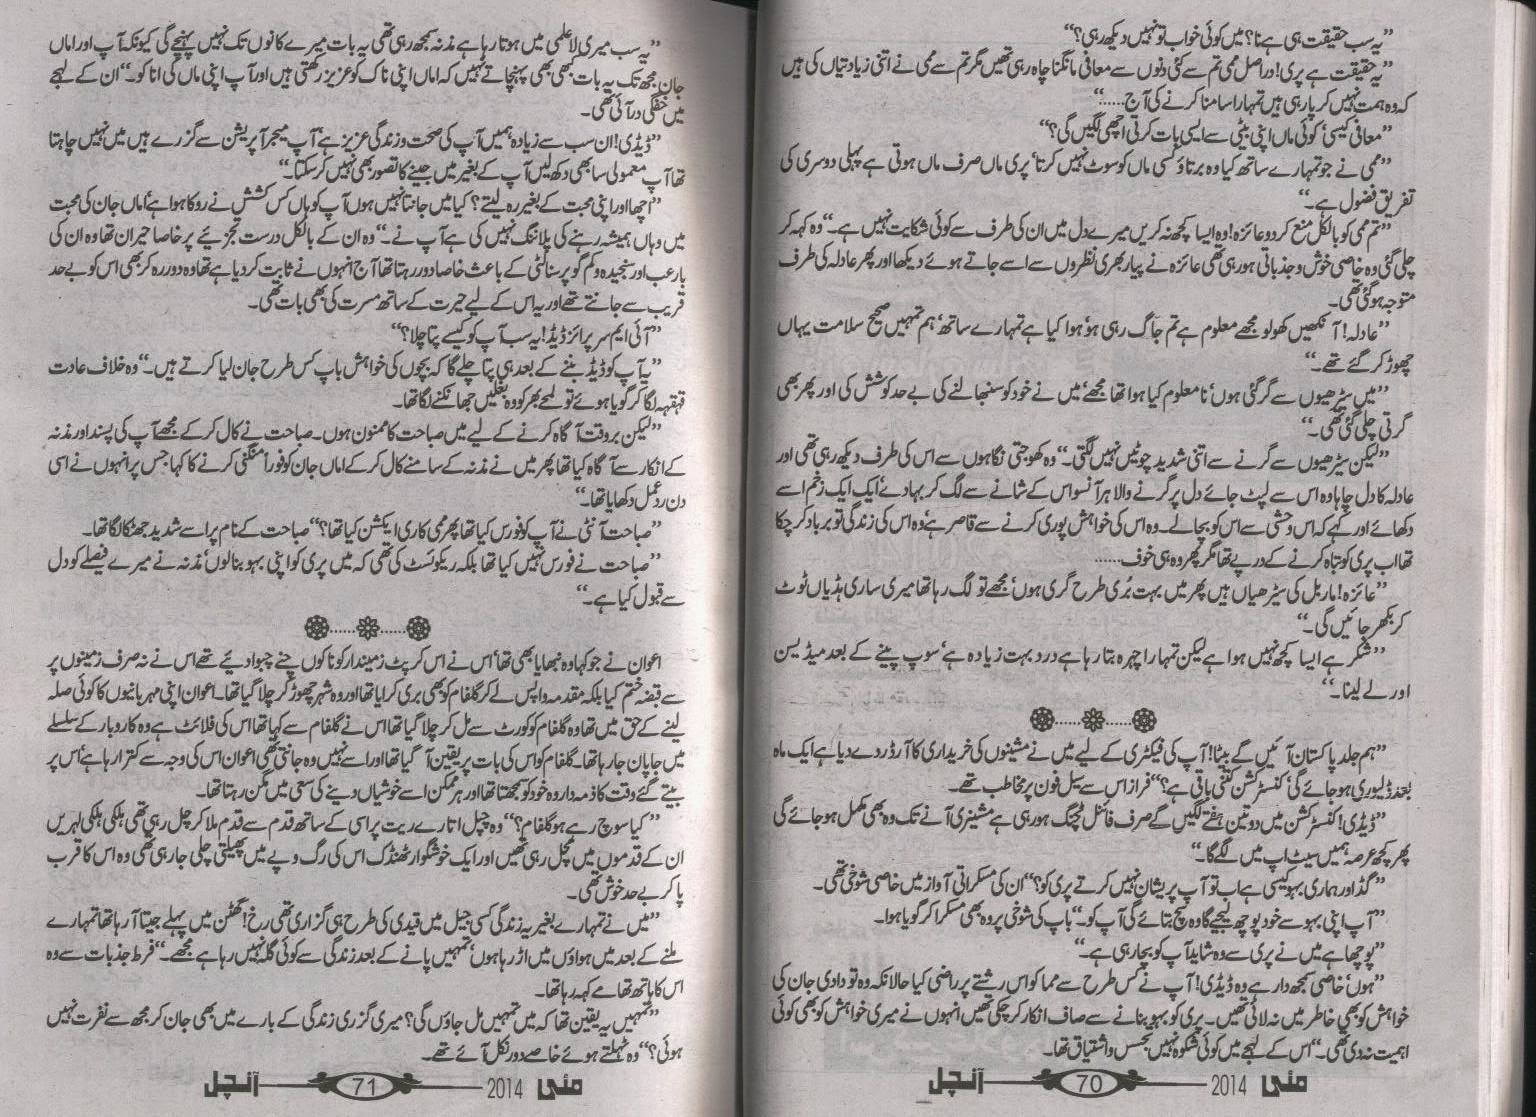 ”یہ سب حقیقت ہی ہے نا؟ میں کوئی خواب تو نہیں دیکھ رہی؟“
”یہ حقیقت ہے پری! دراصل ممی تم سے کئی دنوں سے معافی مانگنا چاہ رہی تھیں مگر تم سے ممی نے اتنی زیادتیاں کی ہیں
کہ وہ ہمت نہیں کر پا رہی ہیں تمہارا سامنا کرنے کی آج……“
”معافی کیسی‘ کوئی ماں اپنی بیٹی سے ایسی بات کرتی اچھی لگیں گی؟“
”ممی نے جو تمہارے ساتھ کیا وہ برتاؤ کسی ماں کو سوٹ نہیں کرتا‘ پری ماں صرف ماں ہوتی ہے پہلی دوسری کی
تفریق فضول ہے۔“
”تم ممی کو بالکل منع کر دو عائزہ! وہ ایسا کچھ نہ کریں میرے دل میں ان کی طرف سے کوئی شکایت نہیں ہے۔“ وہ کہہ کر
چلی گئی وہ خاصی خوش و جذباتی ہو رہی تھی عائزہ نے پیار بھری نظروں سے اسے جاتے ہوئے دیکھا اور پھر عادلہ کی طرف
متوجہ ہو گئی تھی۔
”عادلہ! آنکھیں کھولو مجھے معلوم ہے تم جاگ رہی ہو‘ ہوا کیا ہے تمہارے ساتھ‘ ہم تمہیں صحیح سلامت یہاں
چھوڑ کر گئے تھے۔“
”میں سیڑھیوں سے گر گئی ہوں‘ نا معلوم کیا ہوا تھا مجھے‘ میں نے خود کو سنبھالنے کی بے حد کوشش کی اور پھر بھی
گرتی چلی گئی تھی۔“
”لیکن سیڑھیوں سے گرنے سے اتنی شدید چوٹیں نہیں لگتی۔“ وہ کھوجتی نگاہوں سے اس کی طرف دیکھ رہی تھی اور
عادلہ کا دل چاہا وہ اس سے لپٹ جائے دل پر گرنے والا ہر آنسو اس کے شانے سے لگ کر بہا دے‘ ایک ایک زخم اسے
دکھائے اور کہے کہ اس وحشی سے اس کو بچا لے۔ وہ اس کی خواہش پوری کرنے سے قاصر ہے‘ وہ اس کی زندگی تو برباد کر چکا
تھا اب پری کو تباہ کرنے کے درپے تھا مگر پھر وہ ہی خوف……
”عائزہ! ماربل کی سیڑھیاں ہیں پھر میں بہت بُری طرح گری ہوں‘ مجھے تو لگ رہا تھا میری ساری ہڈیاں ٹوٹ
کر بکھر جائیں گی۔“
”شکر ہے ایسا کچھ نہیں ہوا ہے لیکن تمہارا چہرہ بتا رہا ہے درد بہت زیادہ ہے‘ سوپ پینے کے بعد میڈیسن
اور لے لینا۔“
”ہم جلد پاکستان آئیں گے بیٹا! آپ کی فیکٹری کے لیے میں نے مشینوں کی خریداری کا آرڈر دے دیا ہے ایک ماہ
بعد ڈلیوری ہو جائے گی‘ کنسٹرکشن کتنی باقی ہے؟“ فراز اس سے سیل فون پر مخاطب تھے۔
”ڈیڈی! کنسٹرکشن میں دو تین ہفتے لگیں گے صرف فائنل ٹچنگ ہو رہی ہے مشینری آنے تک وہ بھی مکمل ہو جائے گی
پھر کچھ عرصہ ہمیں سیٹ اپ میں لگے گا۔“
”گڈ اور ہماری بہو کیسی ہے اب تو آپ پریشان نہیں کرتے پری کو؟“ ان کی مسکراتی آواز میں خاصی شوخی تھی۔
”آپ اپنی بہو سے خود پوچھ لیجیے گا وہ سچ بتائے گی آپ کو۔“ باپ کی شوخی پر وہ بھی مسکرا کر گویا ہوا۔
”پوچھا ہے میں نے پری سے وہ شاید آپ کو بچا رہی ہے۔“
”ہوں‘ خاصی سمجھ دار ہے وہ ڈیڈی! آپ نے کس طرح سے مما کو اس رشتے پر راضی کیا حالانکہ وہ تو دادی جان کی
خواہش کو بھی خاطر میں نہ لائی تھیں۔ پری کو بہو بنانے سے صاف انکار کر چکی تھیں انہوں نے میری خواہش کو بھی کوئی
اہمیت نہ دی تھی۔“ اس کے لہجے میں کوئی شکوہ نہیں تجسس و اشتیاق تھا۔
مئی 2014 70 آنچل
”یہ سب میری لاعلمی میں ہوتا رہا ہے مذنہ سمجھ رہی تھی یہ بات میرے کانوں تک نہیں پہنچے گی کیونکہ آپ اور اماں
جان مجھ تک یہ بات بھی بھی پہنچاتے نہیں کہ اماں اپنی ناک کو عزیز رکھتی ہیں اور آپ اپنی ماں کی انا کو۔“ ان کے لہجے
میں خفگی در آئی تھی۔
”ڈیڈی! ان سب سے زیادہ ہمیں آپ کی صحت و زندگی عزیز ہے‘ آپ میجر آپریشن سے گزرے ہیں میں نہیں چاہتا
تھا آپ معمولی سا بھی دکھ لیں آپ کے بغیر میں جینے کا تصور بھی نہیں کر سکتا۔“
”اچھا اور اپنی محبت کے بغیر رہ لیتے؟ کیا میں جانتا نہیں ہوں آپ کو ہاں کس کشش نے روکا ہوا ہے‘ اماں جان کی محبت
میں وہاں ہمیشہ رہنے کی پلاننگ نہیں کی ہے آپ نے۔“ وہ ان کے بالکل درست تجزئیے پر خاصا حیران تھا وہ ان کی
بارعب اور سنجیدہ و کم گو پرسنالٹی کے باعث خاصا دور رہتا تھا آج انہوں نے ثابت کر دیا ہے تھا وہ دور رہ کر بھی اس کو بے حد
قریب سے جانتے تھے اور یہ اس کے لیے حیرت کے ساتھ مسرت کی بھی بات تھی۔
”آئی ایم سرپرائزڈ ڈیڈ! یہ سب آپ کو کیسے پتا چلا؟“
”یہ آپ کو ڈیڈ بننے کے بعد ہی پتا چلے گا کہ بچوں کی خواہش باپ کس طرح جان لیا کرتے ہیں۔“ وہ خلاف عادت
قہقہہ لگا کر گویا ہوئے تو لمحے بھر کو وہ بغلیں جھانکنے لگا تھا۔
”لیکن بروقت آگاہ کرنے کے لیے میں صباحت کا ممنون ہوں۔ صباحت نے کال کر کے مجھے آپ کی پسند اور مذنہ
کے انکار سے آگاہ کیا تھا پھر میں نے مذنہ کے سامنے کال کر کے اماں جان کو فوراً منگنی کرنے کا کہا جس پر انہوں نے اسی
دن ردِعمل دکھایا تھا۔“
”صباحت آنٹی نے آپ کو فورس کیا تھا پھر ممی کا ری ایکشن کیا تھا؟“ صباحت کے نام پر اسے شدید جھٹکا لگا تھا۔
”صباحت نے فورس نہیں کیا تھا بلکہ ریکوئسٹ کی تھی کہ میں پری کو اپنی بہو بنا لوں‘ مذنہ نے میرے فیصلے کو دل
سے قبول کیا ہے۔“
اعوان نے جو کہا وہ نبھایا بھی تھا‘ اس نے اس کرپٹ زمیندار کو ناکوں چنے چبوا دیئے تھے اس نے نہ صرف زمینوں پر
سے قبضہ ختم کیا بلکہ مقدمہ واپس لے کر گلفام کو بھی بری کرایا تھا اور وہ شہر چھوڑ کر چلا گیا تھا۔ اعوان اپنی مہربانیوں کا کوئی صلہ
لینے کے حق میں نہ تھا وہ گلفام کو کورٹ سے مل کر چلا گیا تھا اس نے گلفام سے کہا تھا اس کی فلائٹ ہے وہ کاروبار کے سلسلے
میں جاپان جا رہا تھا۔ گلفام کو اس کی بات پر یقین آ گیا تھا اور اسے نہیں وہ جانتی تھی اعوان اس کی وجہ سے کترا رہا ہے‘ اس پر
بیتے گئے وقت کا ذمہ دار وہ خود کو سمجھتا تھا اور ہر ممکن اسے خوشیاں دینے کی سعی میں مگن رہتا تھا۔
”کیا سوچ رہے ہو گلفام؟“ وہ چپل اتارے ریت پر اسی کے ساتھ قدم سے قدم ملا کر چل رہی تھی ہلکی ہلکی لہریں
ان کے قدموں میں مچل رہی تھیں اور ایک خوشگوار ٹھنڈک اس کی رگ و پے میں پھیلتی چلی جا رہی تھی وہ اس کا قرب
پا کر بے حد خوش تھی۔
”میں نے تمہارے بغیر یہ زندگی کسی جیل میں قیدی کی طرح ہی گزاری تھی رخ! گھٹن میں پہلے جیتا آ رہا تھا تمہارے
ملنے کے بعد میں ہواؤں میں اڑ رہا ہوں‘ تمہیں پانے کے بعد زندگی سے کوئی گلہ نہیں رہا ہے مجھے۔“ فرط جذبات سے وہ
اس کا ہاتھ تھامے کہہ رہا تھا۔
”تمہیں یہ یقین تھا کہ میں تمہیں مل جاؤں گی؟ میری گزری زندگی کے بارے میں بھی جان کر مجھ سے نفرت نہیں
ہوئی؟“ وہ ٹہلتے ہوئے خاصے دور نکل آئے تھے۔
مئی 2014 71 آنچل